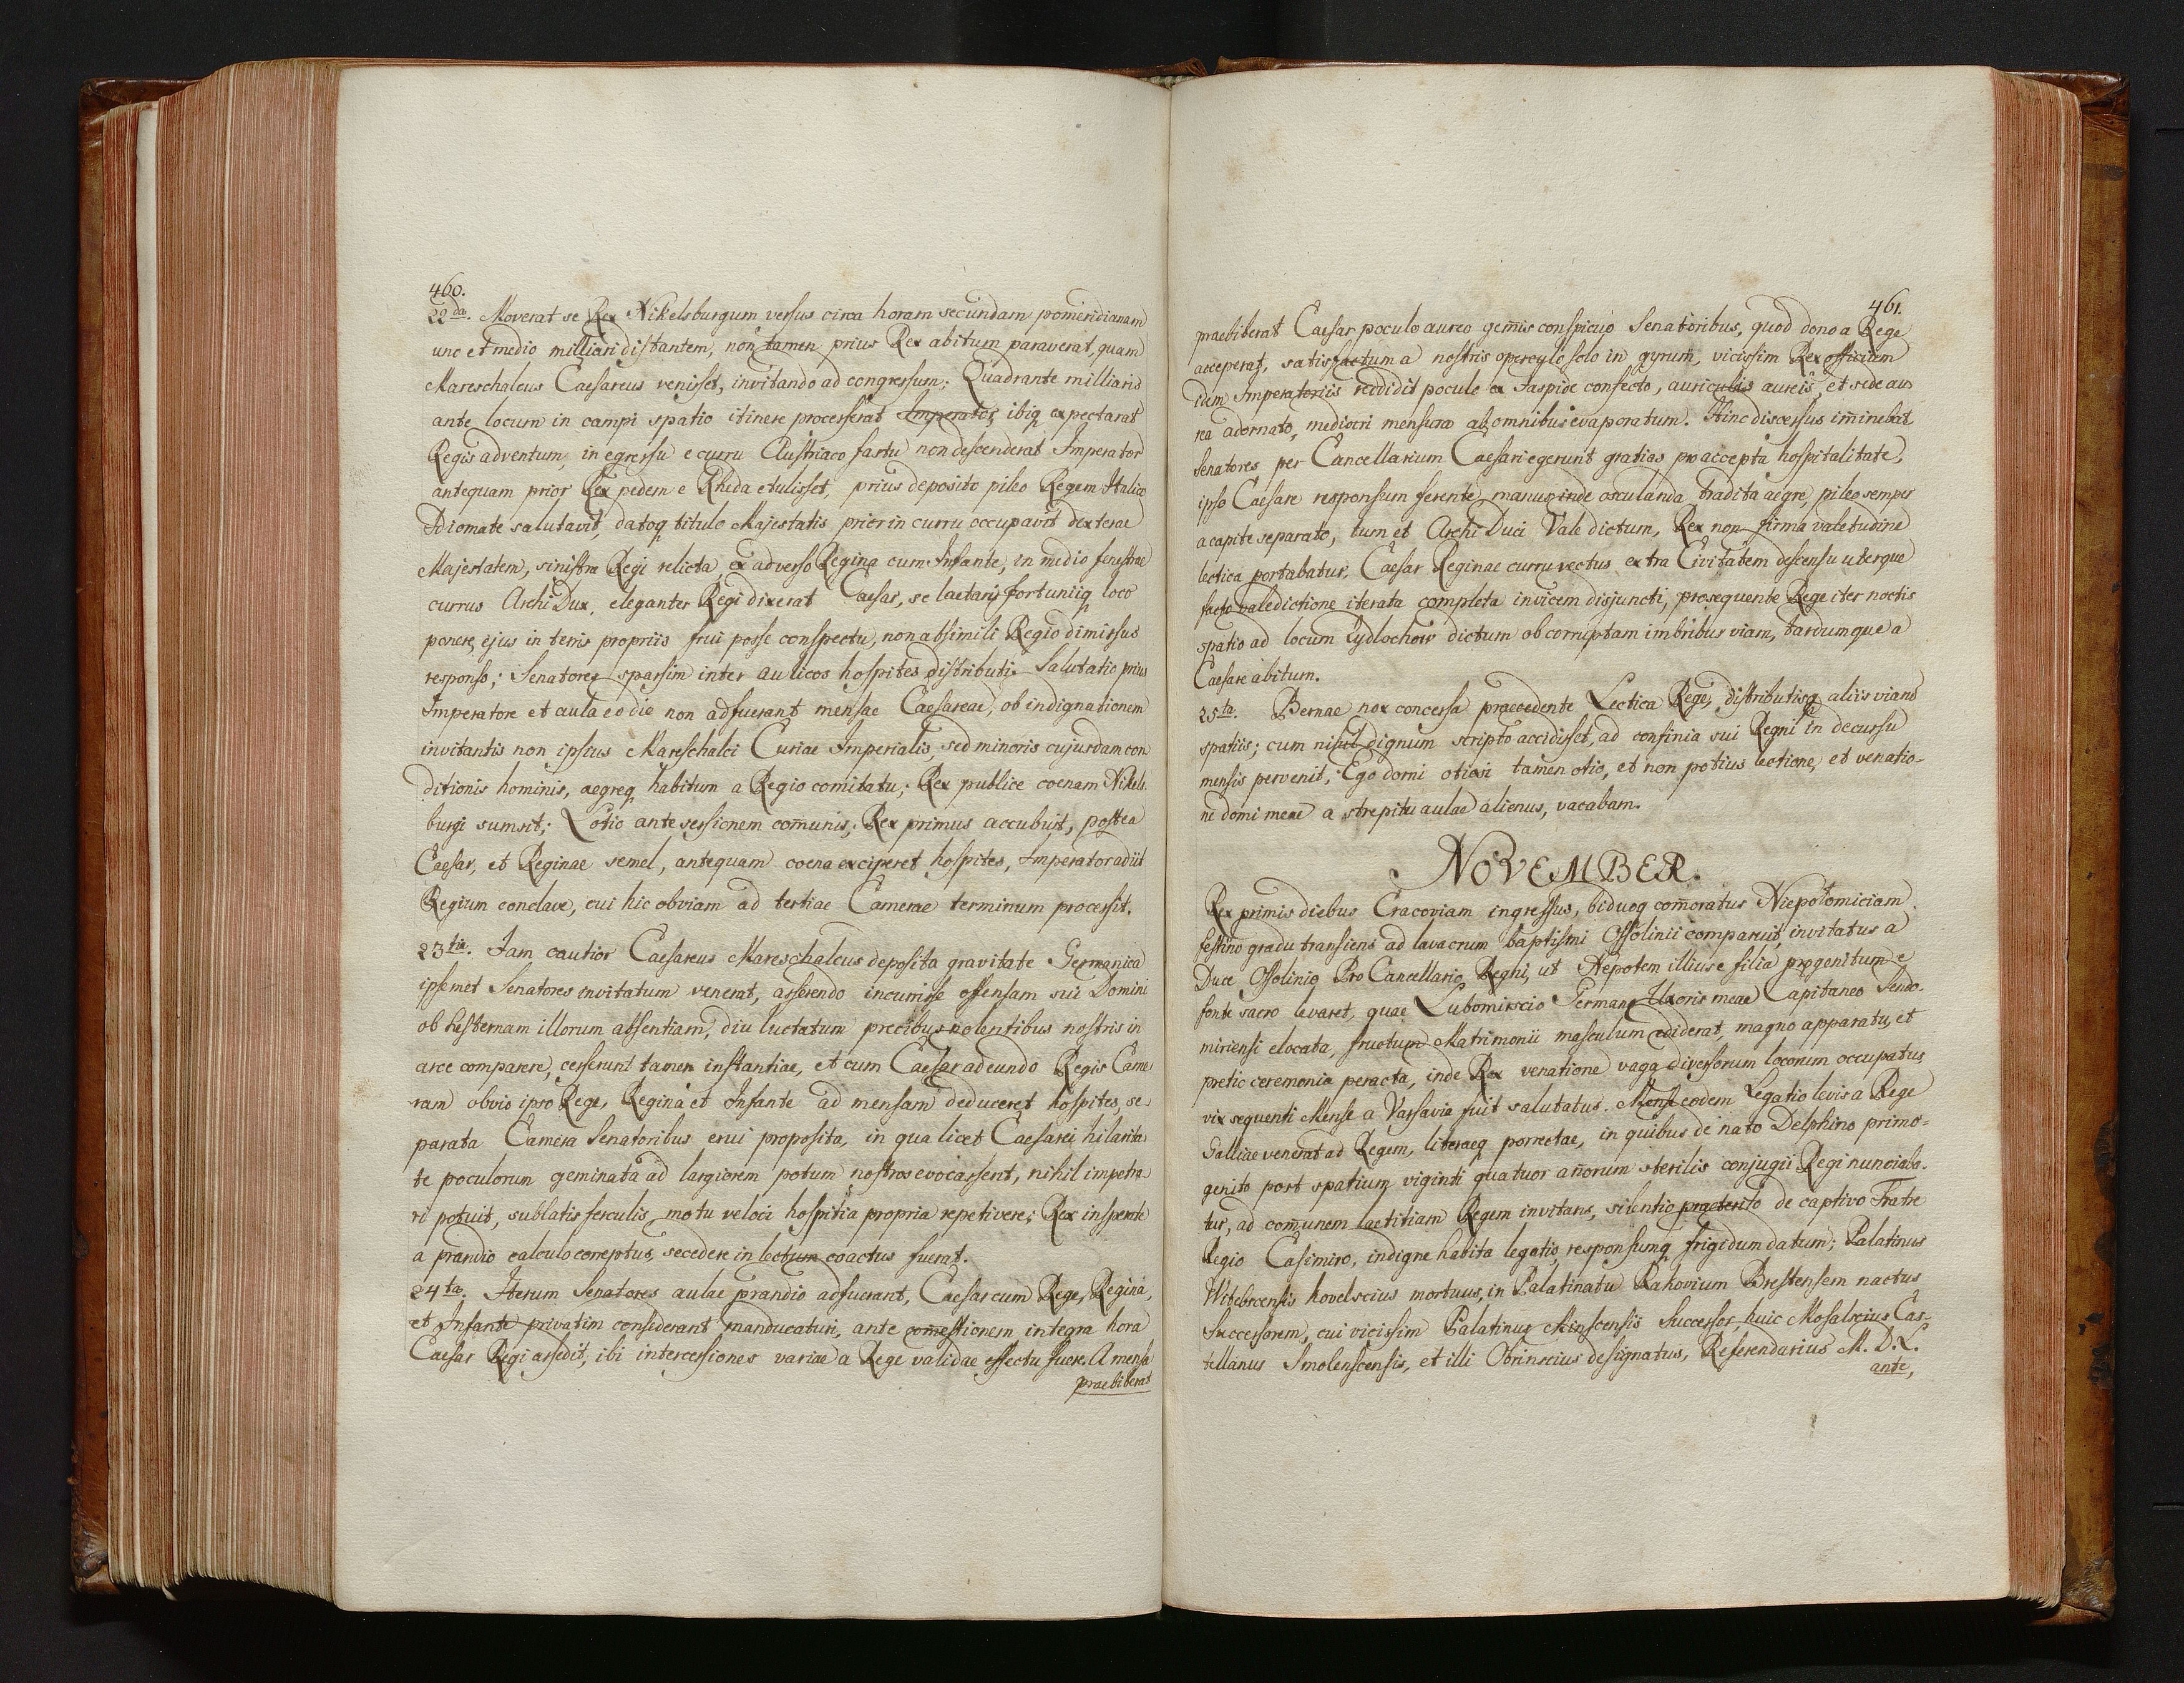 460.
22da. Moverat se Rex Nikelsburgum versus circa horam secundam pomeridianam
uno et medio milliari distantem, non tamen prius Rex abitum paraverat, quam
Mareschalcus Caesareus venisset, invitando ad congressum; Quadrante milliaris
ante locum in campi spatio itinere processerat Imperator, ibiq expectarat
Regis adventum, in egressu e curru Austriaco fastu non descenderat Imperator
antequam prior Rex pedem e Rheda etulisset, prius deposito pileo Regem Italico
Idiomate salutavit, datoq titulo Majestatis prior in curru occupavit dexterae
Majestatem, sinistra Regi relicta, ex adverso Regina cum Infante, in medio fenestrae
currus Archi Dux, eleganter Regi dixerat Caesar, se laetari, fortuniiq loco
ponere, ejus in terris propriis frui posse conspectu, non absimili Regio dimissus
responso; Senatores sparsim inter aulicos hospites distributi. Salutatio prius
Imperatore et aula eo die non adfuerant mensae Caesareae, ob indignationem
invitantis non ipsius Mareschalci Curiae Imperialis, sed minoris cujusdam con
ditionis hominis, aegreq habitum a Regio comitatu; Rex publice coenam Nikels.
burgi sumsit; Lotio ante sessionem com̄unis; Rex primus accubuit, postea
Caesar, et Reginae semel, antequam coena exciperet hospites, Imperator adiit
Regium conclave, cui hic obviam ad tertiae Camerae terminum processit.
23tia. Jam cautior Caesareus Mareschalcus deposita gravitate Germanica
ipsemet Senatores invitatum venerat, asserendo incurrisse offensam sui Domini
ob hesternam illorum absentiam, diu luctatum precibus nolentibus nostris in
arce comparere, cesserunt tamen instantiae, et cum Caesar adeundo Regis Came
ram obvio ipso Rege, Regina et Infante ad mensam deduceret hospites, se
parata Camera Senatoribus erui proposita, in qua licet Caesarei hilarita
te poculorum geminata ad largiorem potum nostros evocassent, nihil impetra
ri potuit, sublatis ferculis motu veloci hospitia propria repetivere; Rex insperate
a prandio calculo correptus, secedere in lectum coactus fuerat.
24ta. Iterum Senatores aulae prandio adfuerant, Caesar cum Rege, Regina,
et Infante privatim considerant manducaturi, ante com̄estionem integra hora
Caesar Regi assedit, ibi intercessiones variae a Rege validae effectu fuere. A mensa
praebiberat
461.
praebiberat Caesar poculo aureo gem̄is conspicuo Senatoribus, quod dono a Rege
acceperat, satisfactum a nostris operculo solo in gyrum, vicissim Rex officium
idem Imperatoriis reddidit poculo ex Jaspide confecto, auriculis aureis, et sede au
rea adornato, mediocri mensura ab omnibus evaporatum. Hinc discessus im̄inebat
Senatores per Cancellarium Caesari egerunt gratias pro accepta hospitalitate,
ipso Caesare responsum ferente, manuq inde osculanda tradita aegre, pileo semper
a capite separato, tum et Archi Duci Vale dictum, Rex non firma valetudine
lectica portabatur, Caesar Reginae curru vectus extra Civitatem descensu uterque
facto valedictione iterata completa invicem disjuncti, prosequente Rege iter noctis
spatio ad locum Zydlochow dictum ob corruptam imbribus viam, tardumque a
Caesare abitum.
25ta. Bernae nox concessa praecedente Lectica Rege, distributisq aliis viand
spatiis; cum nihil dignum scripto accidisset, ad confinia sui Regni in decursu
mensis pervenit, Ego domi otiosi tamen otio, et non potius lectione, et venatio-
ne domi meae a strepitu aulae alienus, vacabam.
NOVEMBER.
Rex primis diebus Cracoviam ingressus, biduoq com̄oratus Niepolomiciam
festino gradu transiens ad lavacrum baptismi Ossolinii comparuit, invitatus a
Duce Ossolinio Pro Cancellario Regni, ut Nepotem illius e filia progenitum e
fonte sacro levaret, quae Lubomirscio Germano Uxoris meae Capitaneo Sendo-
miriensi elocata, fructum Matrimonii masculum ediderat, magno apparatu, et
pretio ceremonia peracta, inde Rex venatione vaga diversorum locorum occupatus
vix sequenti Mense a Varsavia fuit salutatus. Mense eodem Legatio levis a Rege
Galliae venerat ad Regem, literaeq porrectae, in quibus de nato Delphino primo-
genito post spatium viginti quatuor an̄orum sterilis conjugii Regi nunciaba-
tur, ad com̄unem laetitiam Regem invitans, silentio praeterito de captivo Fratre
Regio Casimiro, indigne habita legatio, responsumq frigidum datum; Palatinus
Witebscensis hovelscius mortuus, in Palatinatu Rakovium Brestensem nactus
Successorem, cui vicissim Palatinus Minscensis Successor, huic Mosalscius Cas-
tellanus Smolenscensis, et illi Obrinscius designatus, Referendarius M. D. L.
ante,